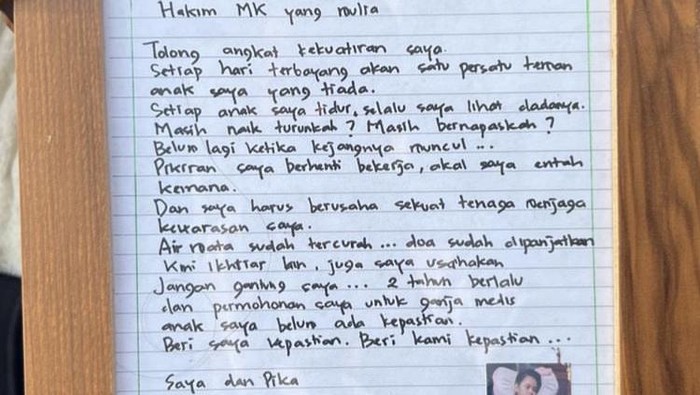 Hakim MK yang mulia
Tolong angkat kekuatiran saya.
Setiap hari terbayang akan satu persatu teman
anak saya yang tiada.
Setiap anak saya tidur, selalu saya lihat dadanya.
Masih naik turunkah? Masih bernapaskah?
Belum lagi ketika kejangnya muncul...
Pikiran saya berhenti bekerja, akal saya entah
kemana.
Dan saya harus berusaha sekuat tenaga menjaga
kewarasan saya.
Air mata sudah tercurah... doa sudah dipanjatkan
Kini ikhtiar lain, juga saya usahakan
Jangan gantung saya... 2 tahun berlalu
dan permohonan saya untuk ganja medis
anak saya belum ada kepastian.
Beri saya kepastian. Beri kami kepastian...
Saya dan Pika